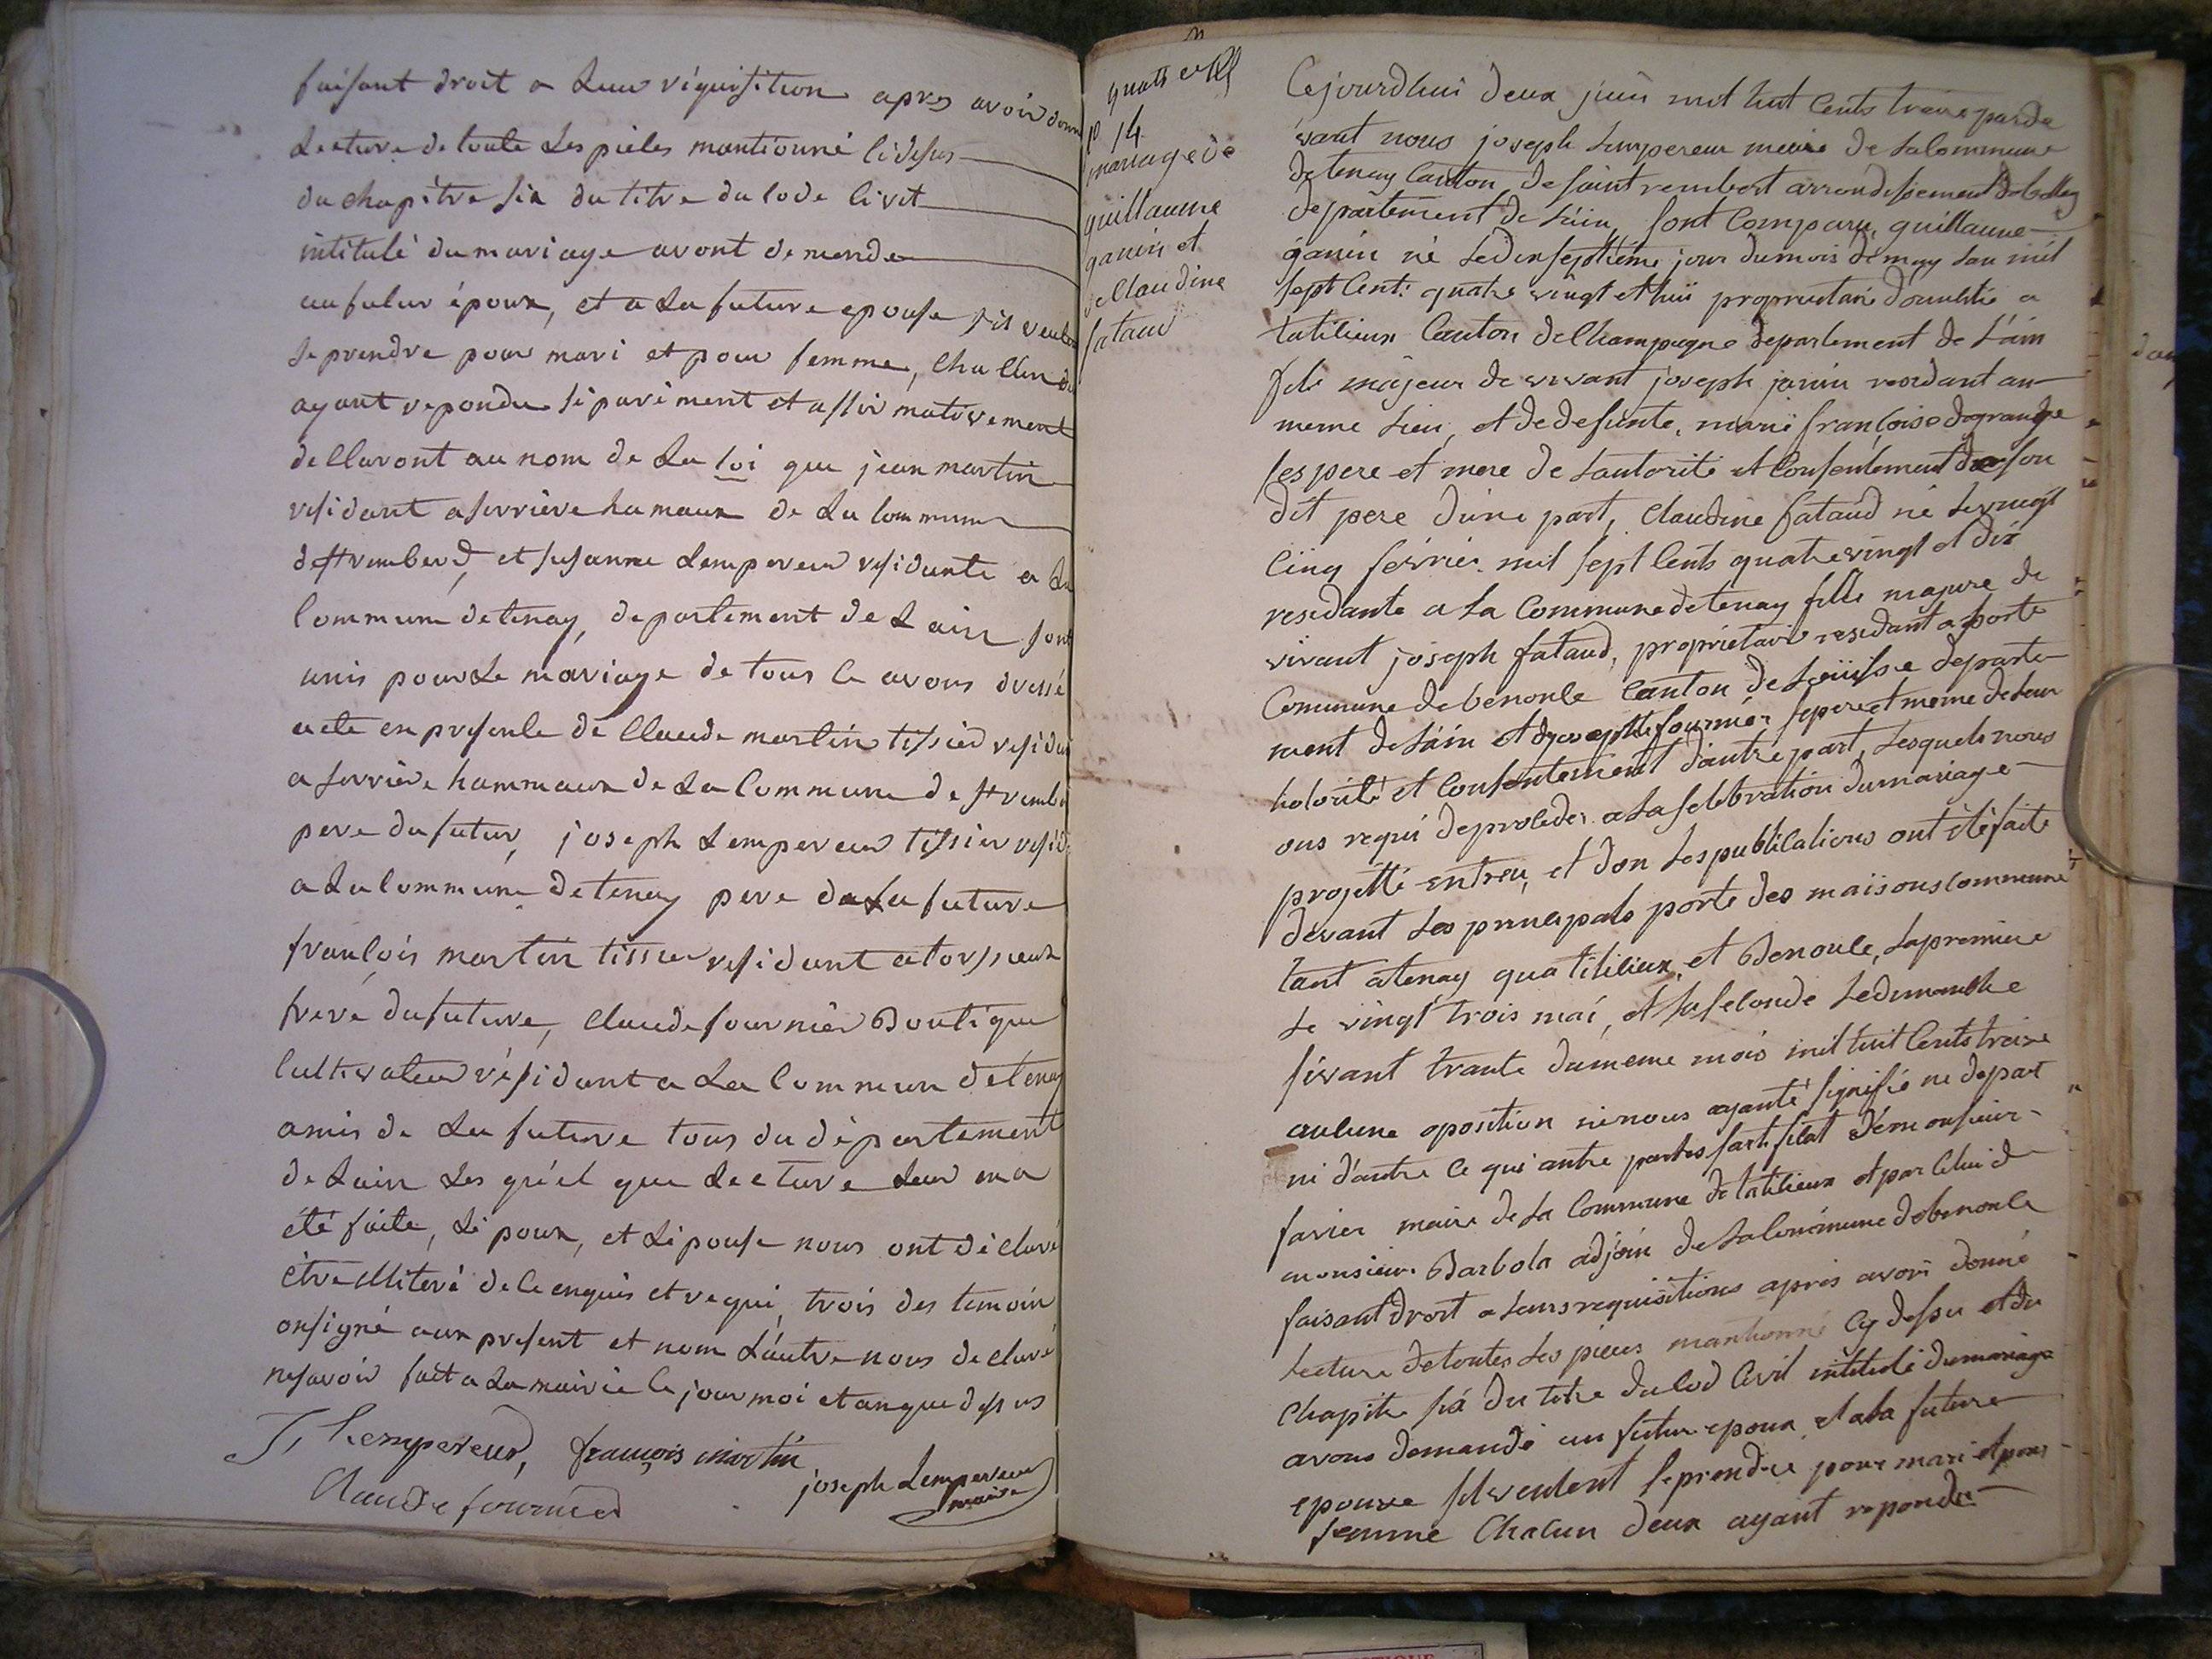 faisant droit a Leur réquisition apres avoir donn
Lecture de toute Les pieces mantionné cidesus
du chapitre six du titre du code civit
intitulé du mariage avont demende
au futur époux, et a La future epouse s'ils veulen
se prendre pour mari et pour femme, chaccun du
ayant repondu séparément et affirmativement
declaront au nom de La loi que jean martin
residant a serriere hamaux de La commune
de st rembert, et susanne Lempereur residante a La
commune de tenay, departement de Lain sont
unis pour Le màriage de tous ce avons dressé
acte en presence de Claude martin tissier residen
a serriere hammaux de La commune de st rembe
pere du futur, joseph Lempereur tissier resid
a La commune de tenay pere de La future
françois martin tissier residant a torssieux
frere du future, Claude fournier Boutique
cultivateur résidant a La commun de tenay
amis de La future tous du département
de Lain Les qu'el que Lecture Leur en a
été faite, Lépoux, et Lépouse nous ont déclaré
être illiteré de ce enquis et requi, trois des temoin
onsigné aux present et nom L'autre nous declaré
ne savoir fait a La mairie ce jour moi et an que desus
J, Lempereur, françois martin
Claude fournier joseph Lempereur
maire
quatorze
no 14
mariage de
guillaume
ganin et
de Claudine
fataud
Cejourdhui deux juin mil huit cents traise parde
vant nous joseph Lempereur maire de La commune
de tenay canton de saint rembert arrondissement de belley
departement de Lain, sont comparu, guillaume
ganin né Le dix septiéme jour du mois de may Lan mil
sept cents quatre vingt et huit proprietaire domicilié a
tatilieux canton de Champagne departement de L'ain
fils majeur de vivant joseph janin residant au
meme Lieu, et de defunte, marie françoise degrange
ses pere et mere de Lautorité et consentement de son
dit pere d'une part, Claudine fataud né Le vingt
cinq février mil sept cents quatre vingt et dix
residante a La commune de tenay fille majeure de
vivant joseph fataud, propriétaire residant a porte
commune de benonce canton de Lhuise departe
ment de Lain et de josephte fournier se pere et mere de Leur
hotorité et consentement d'autre part, Lesquels nous
ons requi de proceder a La selebration du mariage
projetté entreu, et don Les publications ont été faite
devant Les principals porte des maisons commune
tant a tenay qua titilieux, et Benonce, La premiere
Le vingt trois mai, et La seconde Le dimanche
sivant trante du meme mois mil huit cents traise
aucune oposition ne nous ayanté signifié ne de part
ni d'autre ce qui autre partes sartifilat de monsieur
favier maire de La commune de tatilieux et par celui de
monsieur Barbola adjoin de La commune de benonce
faisant droit a Leurs requisitions après avoir donné
Lecture de toutes Les pieces mantionné cy desu et du
chapitre six du titre du cod civil intitulé du mariage
avons demandé au futur epoux et a La future
epouse s'il veulent se prendre pour mari et pour
femme Chacun deux ayant repondu